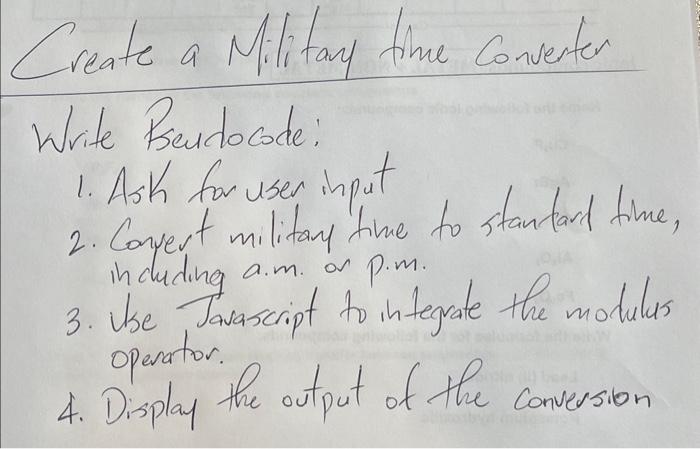 Create a Military time Converter
Write Pseudocode:
1. Ask for user input
2. Convert military time to standard time,
including a.m. or p.m.
3. Use Javascript to integrate the modulus
operator.
4. Display the output of the conversion